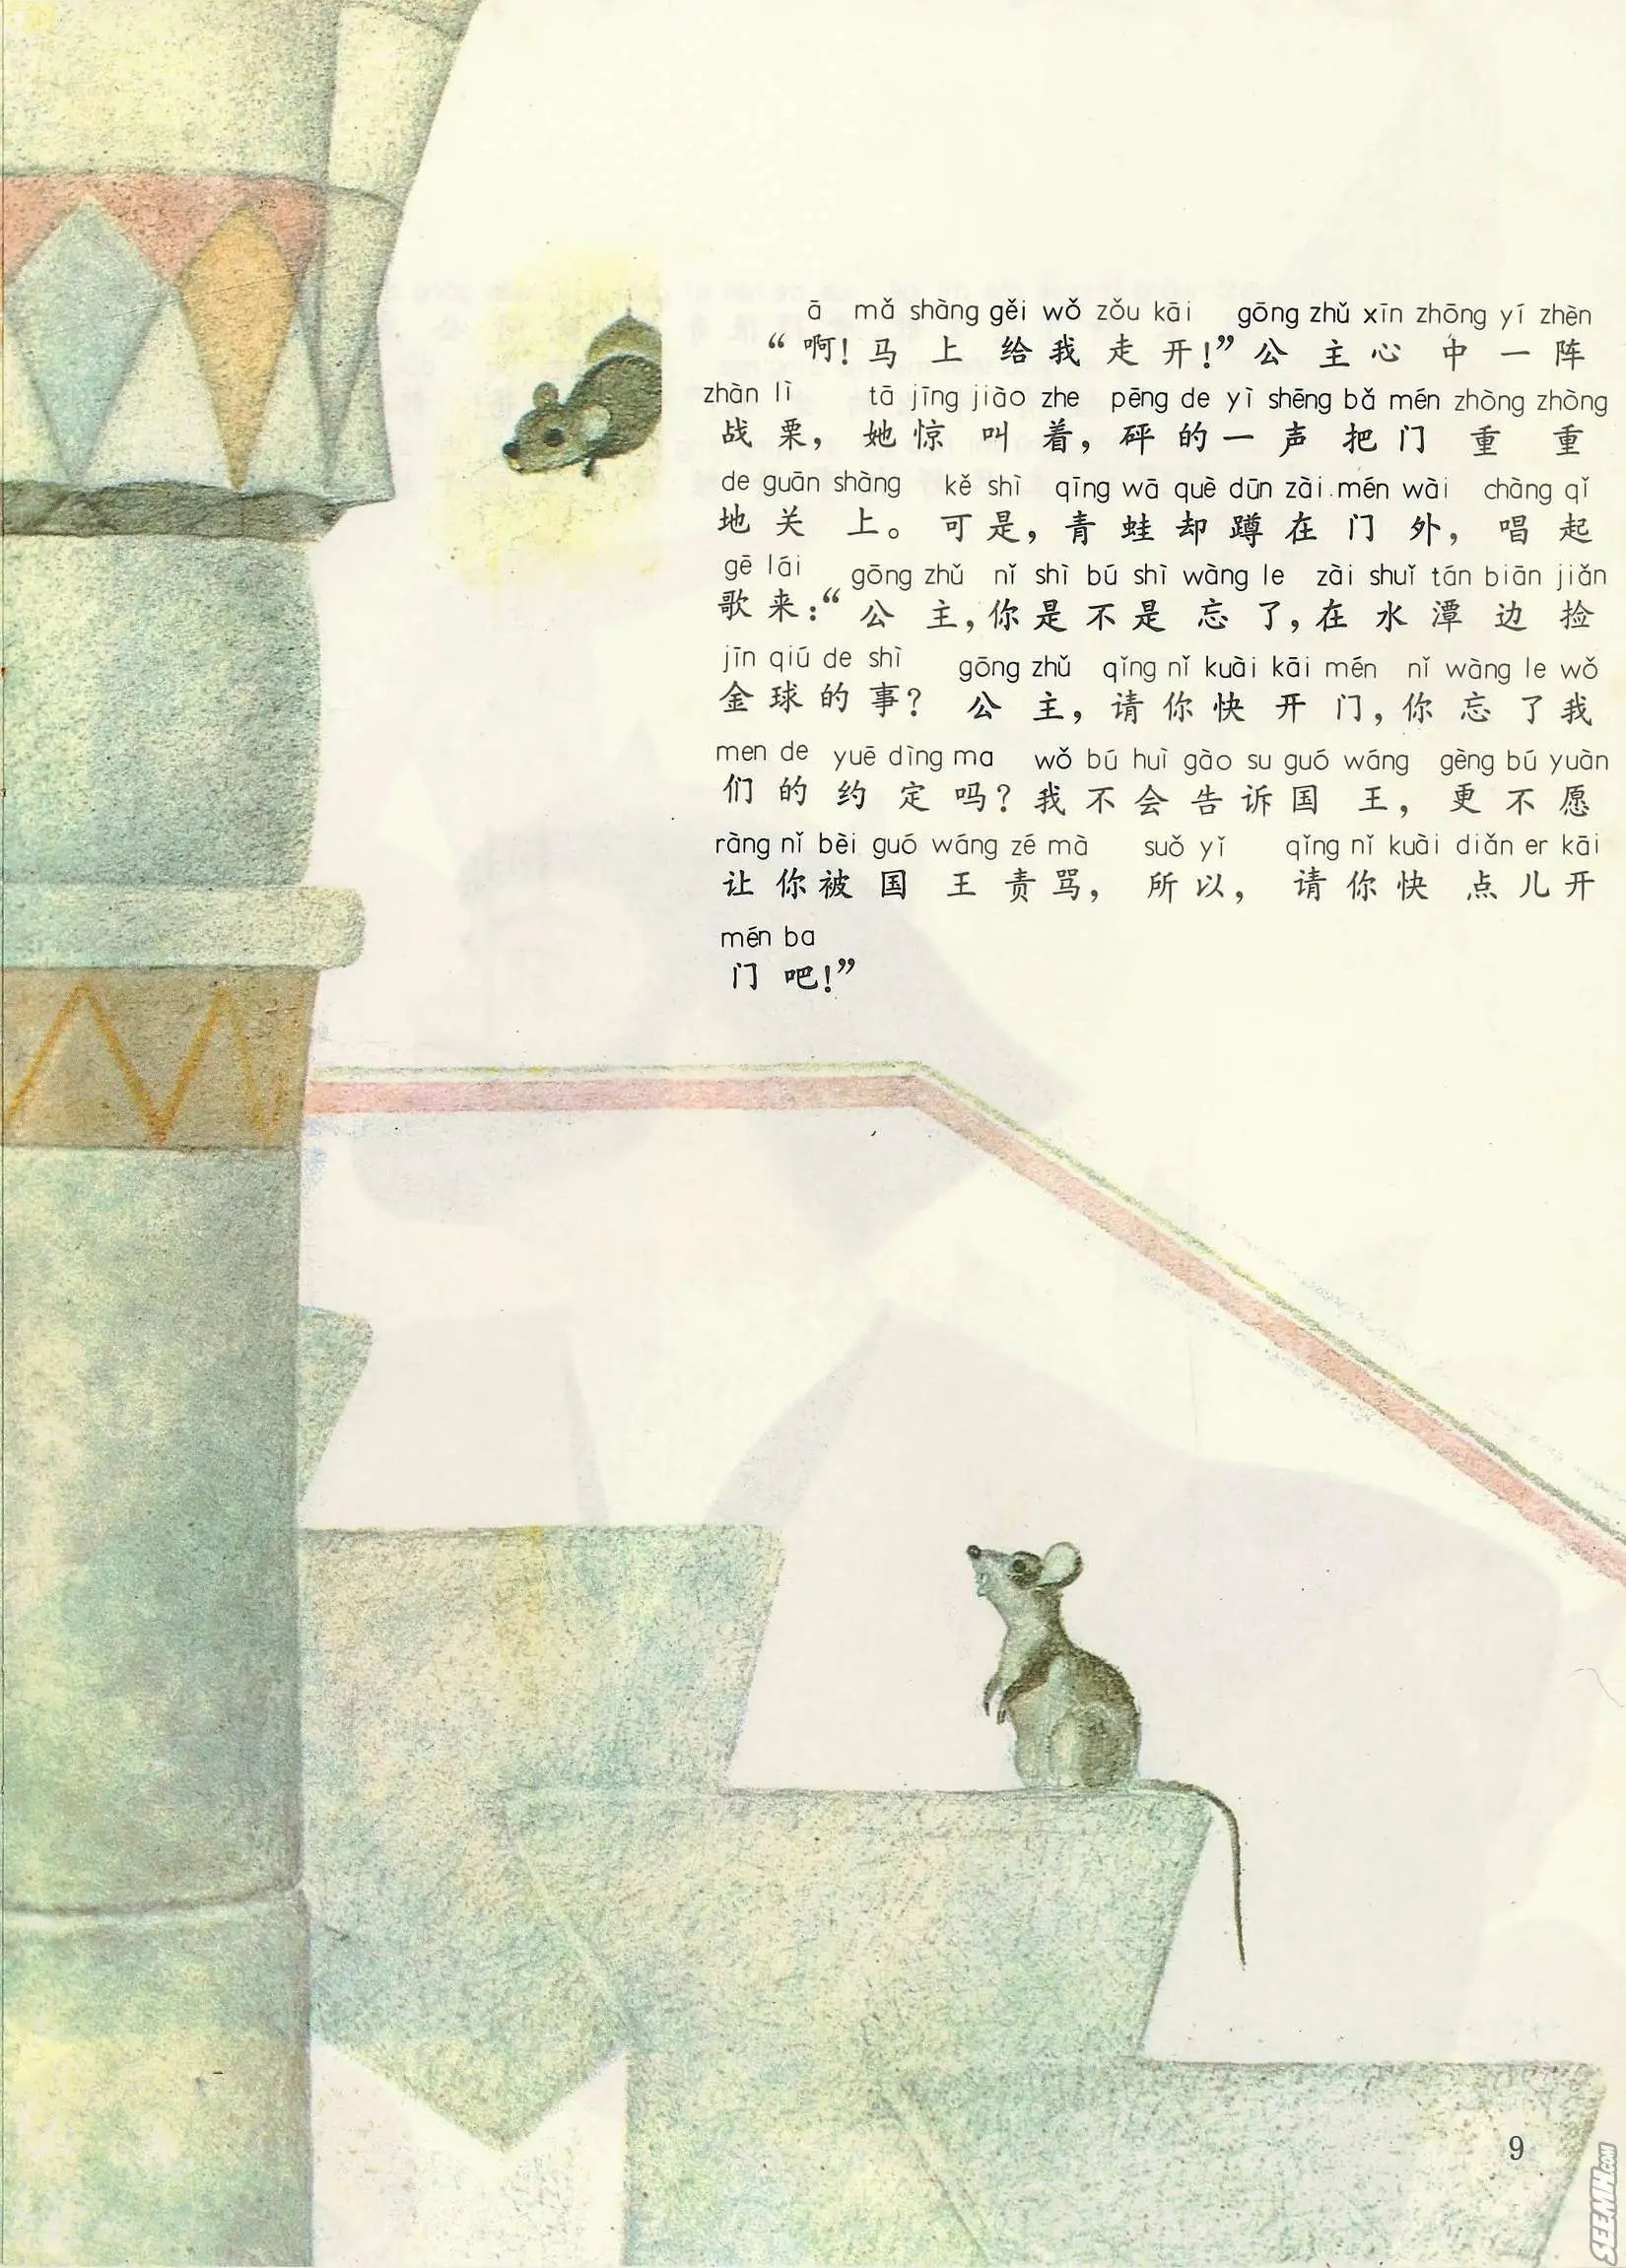 ā mǎ shàng gěi wǒ zǒu kāi gōng zhǔ xīn zhōng yí zhèn
“啊!马上给我走开!”公主心中一阵
zhàn lì tā jīng jiào zhe pēng de yì shēng bǎ mén zhòng zhòng
战栗,她惊叫着,砰的一声把门重重
de guān shàng kě shì qīng wā què dūn zài mén wài chàng qǐ
地关上。可是,青蛙却蹲在门外,唱起
gē lái gōng zhǔ nǐ shì bú shì wàng le zài shuǐ tán biān jiǎn
歌来:“公主,你是不是忘了,在水潭边捡
jīn qiú de shì gōng zhǔ qǐng nǐ kuài kāi mén nǐ wàng le wǒ
金球的事?公主,请你快开门,你忘了我
men de yuē dìng ma wǒ bú huì gào su guó wáng gèng bú yuàn
们的约定吗?我不会告诉国王,更不愿
ràng nǐ bèi guó wáng zé mà suǒ yǐ qǐng nǐ kuài diǎn er kāi
让你被国王责骂,所以,请你快点儿开
mén ba
门吧!”
9
SEEMH.COM